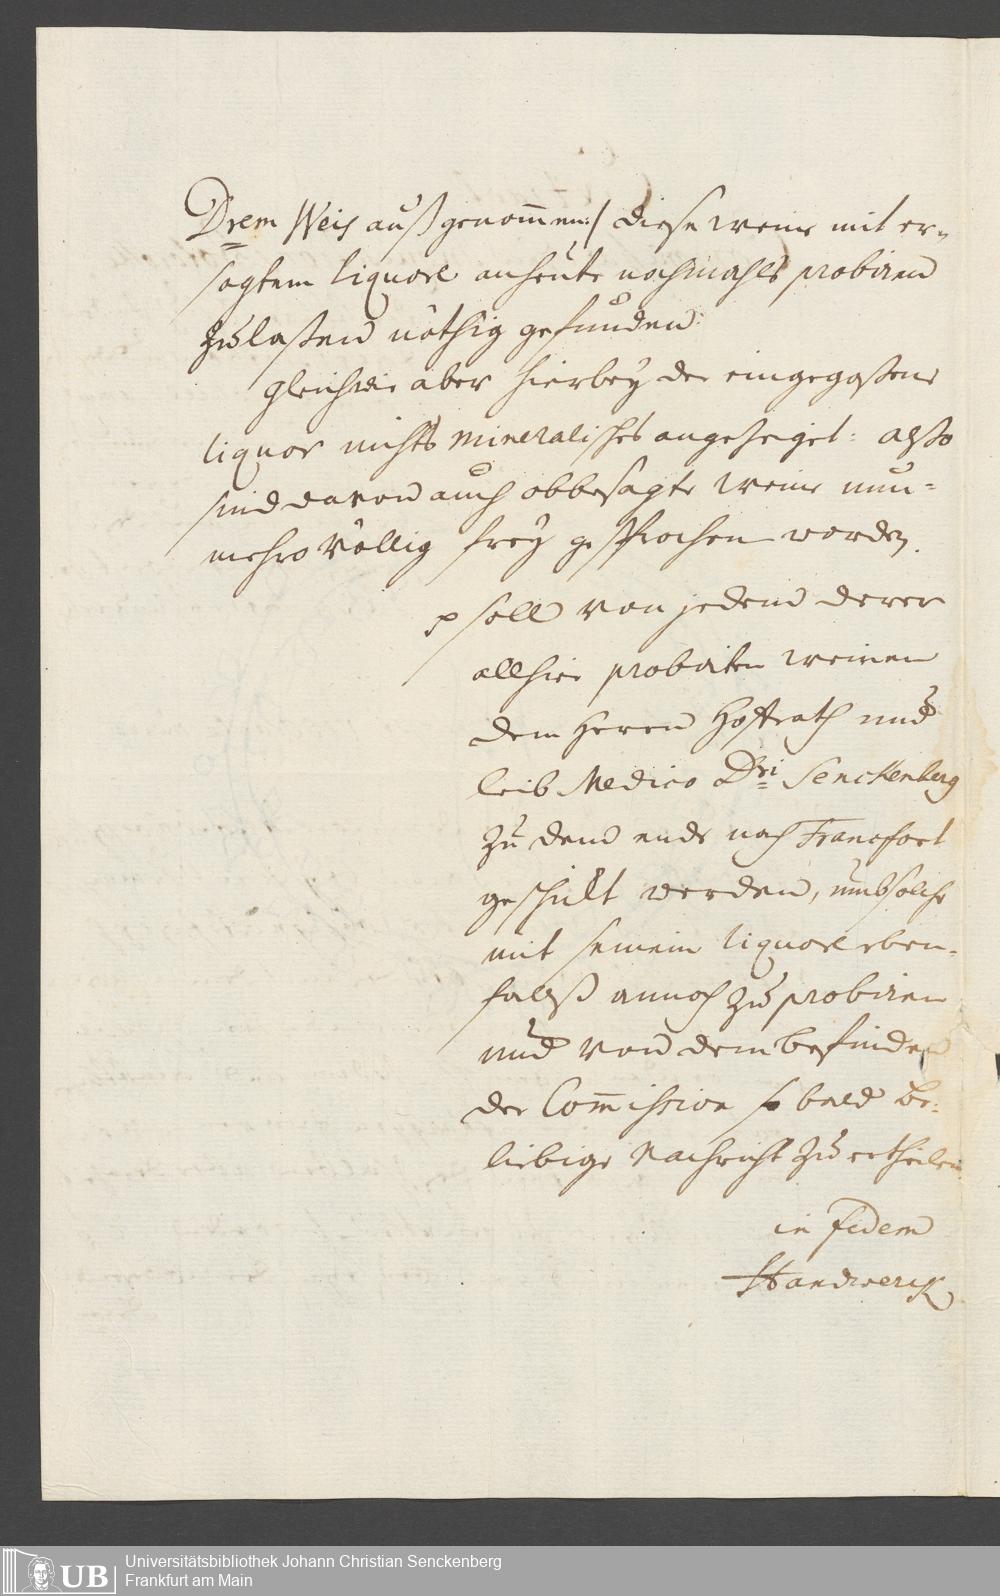 Drem Weis außgenommen:/ diese weine mit er-
sagtem liquore anheute nochmahls probiren
zu laßen nöthig gefunden.
Gleichwie aber hierbey der eingegoßene
liquor nichts mineralisches angezeiget: alßo
sind davon auch obbesagte weine nun=
mehro völlig frey gesprochen worden.
p soll von jedem derer
allhier probirten weinen
dem Herrn Hoffrath und
leib Medico Dri Senckenberg
zu dem ende nach Francfort
geschickt werden, umb solche
mit seinem liquore eben-
falß annoch zu probiren
und von dem befinden
der Commission so bald be-
liebige Nachricht zu ertheilen
in fidem
Handwerck
UB
Universitätsbibliothek Johann Christian Senckenberg
Frankfurt am Main